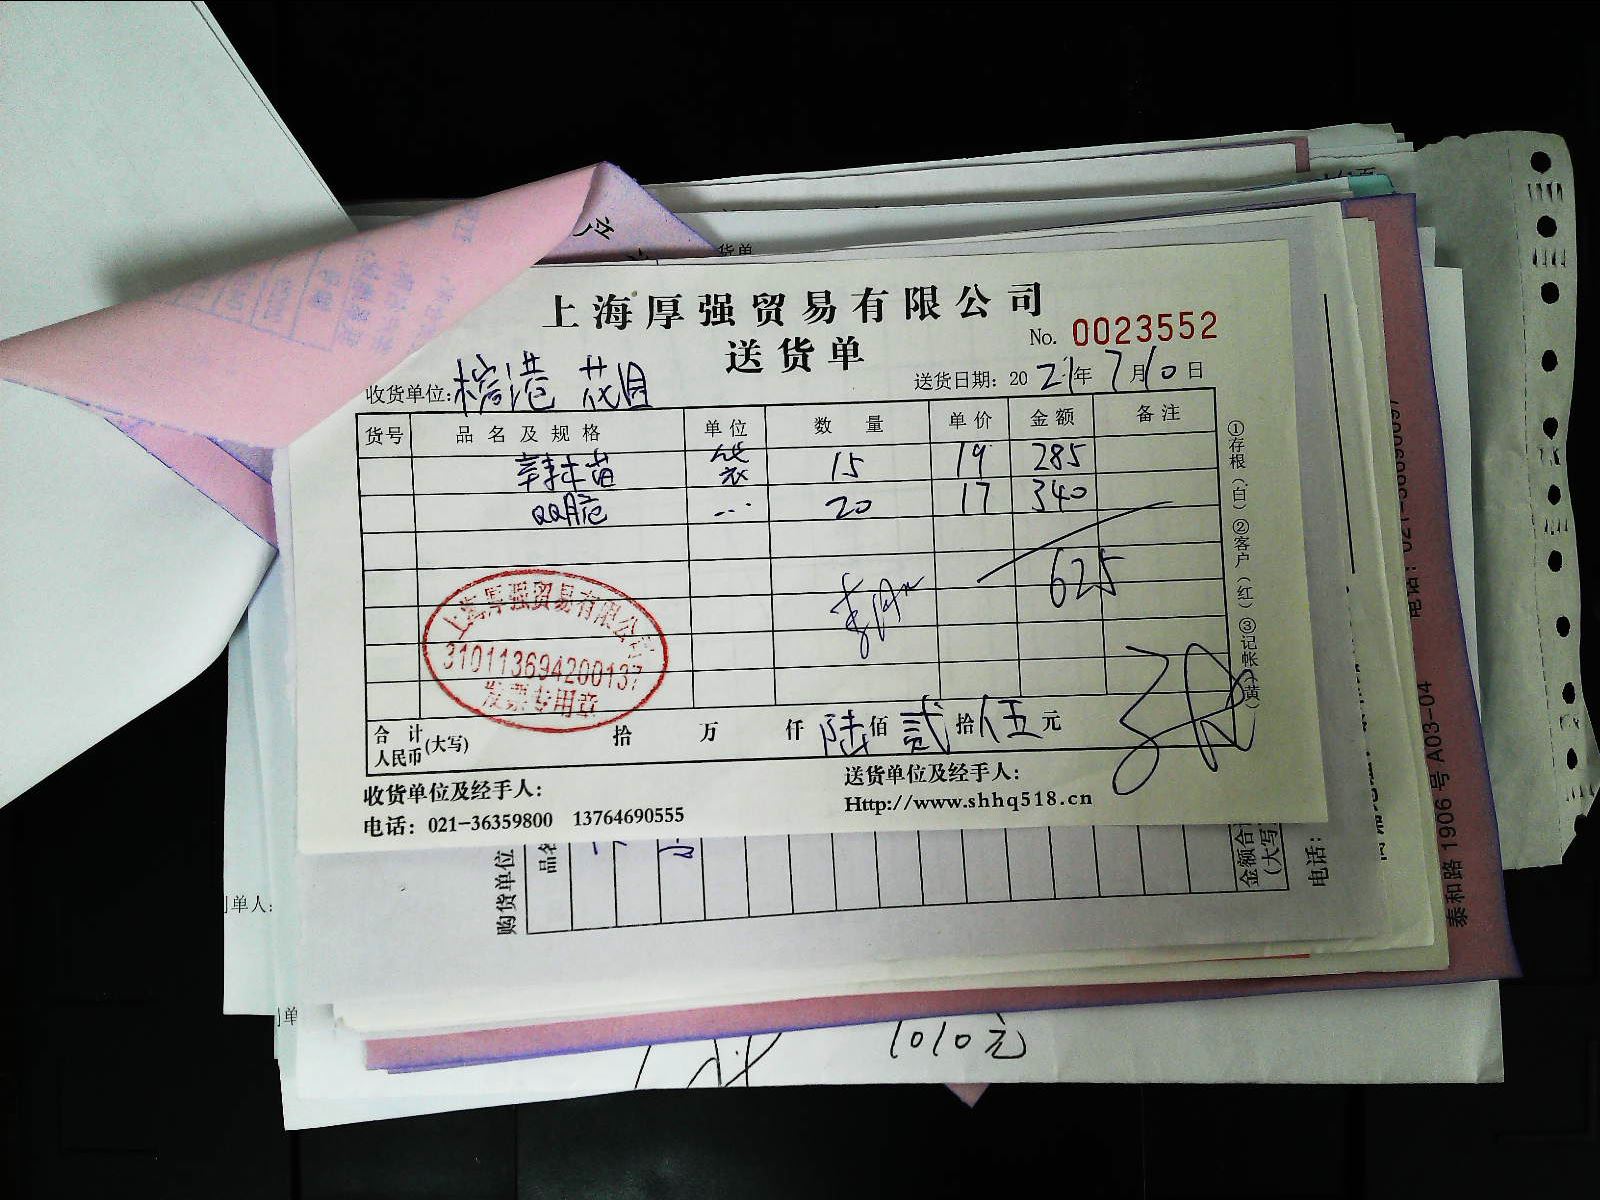 上海厚强贸易有限公司
送货单
No. 0023552
收货单位: 花姐
送货日期: 2021年7月10日
货号 品名及规格 单位 数量 单价 金额 备注
袋 15 19 285
QQ肠 20 17 340
625
上海厚强贸易有限公司
310113694200137
发票专用章
合计人民币(大写) 拾 万 仟 陆佰 贰拾 伍元
收货单位及经手人:
送货单位及经手人:
电话: 021-36359800 13764690555
Http://www.shhq518.cn
①存根(白) ②客户(红) ③记帐(黄)
货单
购货单位
品名
金额合计
(大写)
电话:
泰和路 1906 号 A03-04
制单人:
1010元